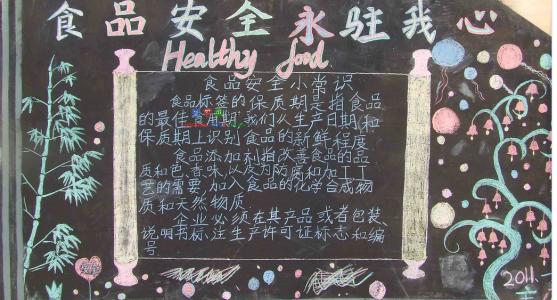 食品安全永驻我心
Healthy food
食品安全小常识
食品标签的保质期是指食品
的最佳食用期,我们从生产日期和
保质期上识别食品的新鲜程度
食品添加剂指改善食品的品
质和色、香、味,以及为防腐和加工工
艺的需要,加入食品的化学合成物
质和天然物质
企业必须在其产品或者包装
说明书标注生产许可证标志和编
号
2011.